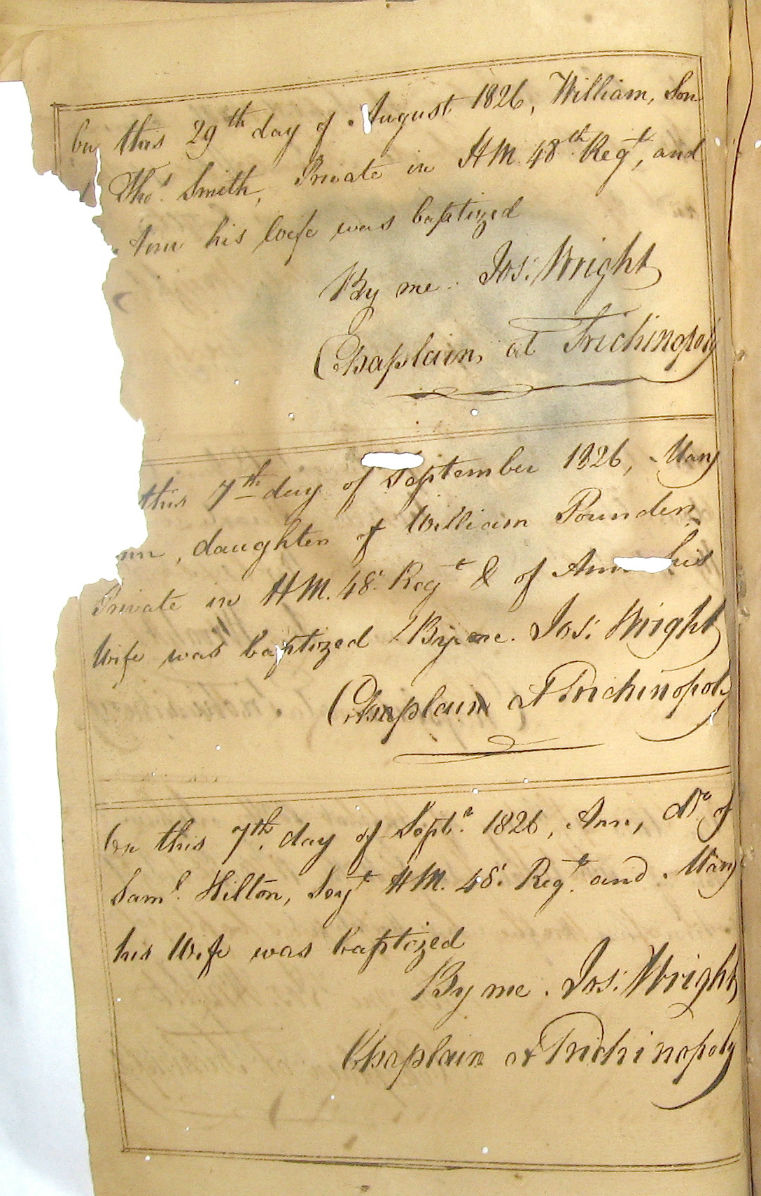 On this 29th day of August 1826, William, Son
Thos. Smith, Private in H.M. 48th Regt, and
Ann his Wife was baptized
By me. Jos: Wright
Chaplain, at Trichinopoly
this 7th day of September 1826, Mary
Ann, daughter of William Pounden,
Private in H.M. 48. Regt & of Ann his
Wife was baptized By me. Jos: Wright
Chaplain at Trichinopoly
On this 7th. day of Sept. 1826, Ann, Dr of
Saml. Hilton, Sergt H.M. 48. Regt. and Mary
his Wife was baptized
By me. Jos: Wright
Chaplain at Trichinopoly